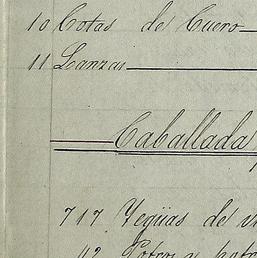 10 Cotas de Cuero
11 Lanzas
Caballada
717 Yeguas de
42 Potros y